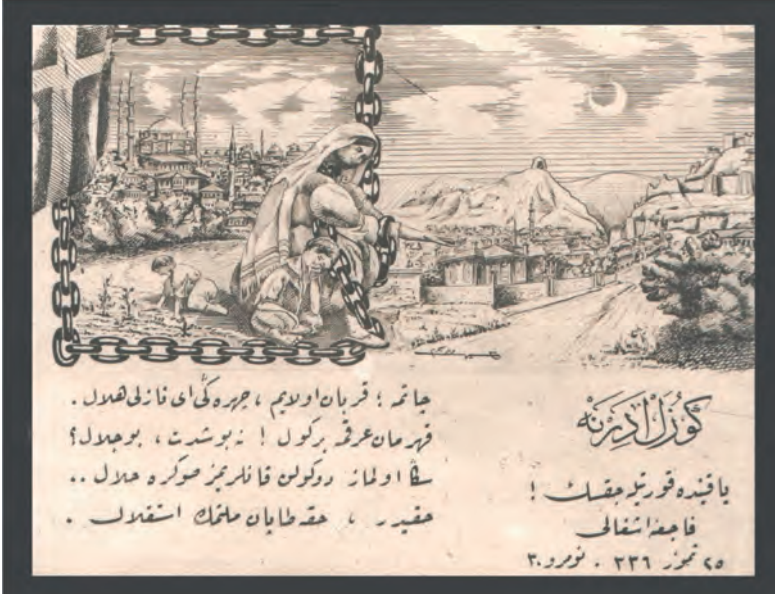 كوزل ادرنه
ياقينده قورتيله جقسك !
فاجعهٔ اشغالى
٢٥ تموز ٣٣٦ . نومرو ٣٠
چاتمه ؛ قربان اولايم ، چهره ڭى اى نازلى هلال .
قهرمان عرقمه بركول ! نه بو شدت ، بو جلال ؟
سڭا اولماز دوكولن قانلريمز صوكره حلال ..
حقيدر ، حقه طاپان ملتمك استقلال .